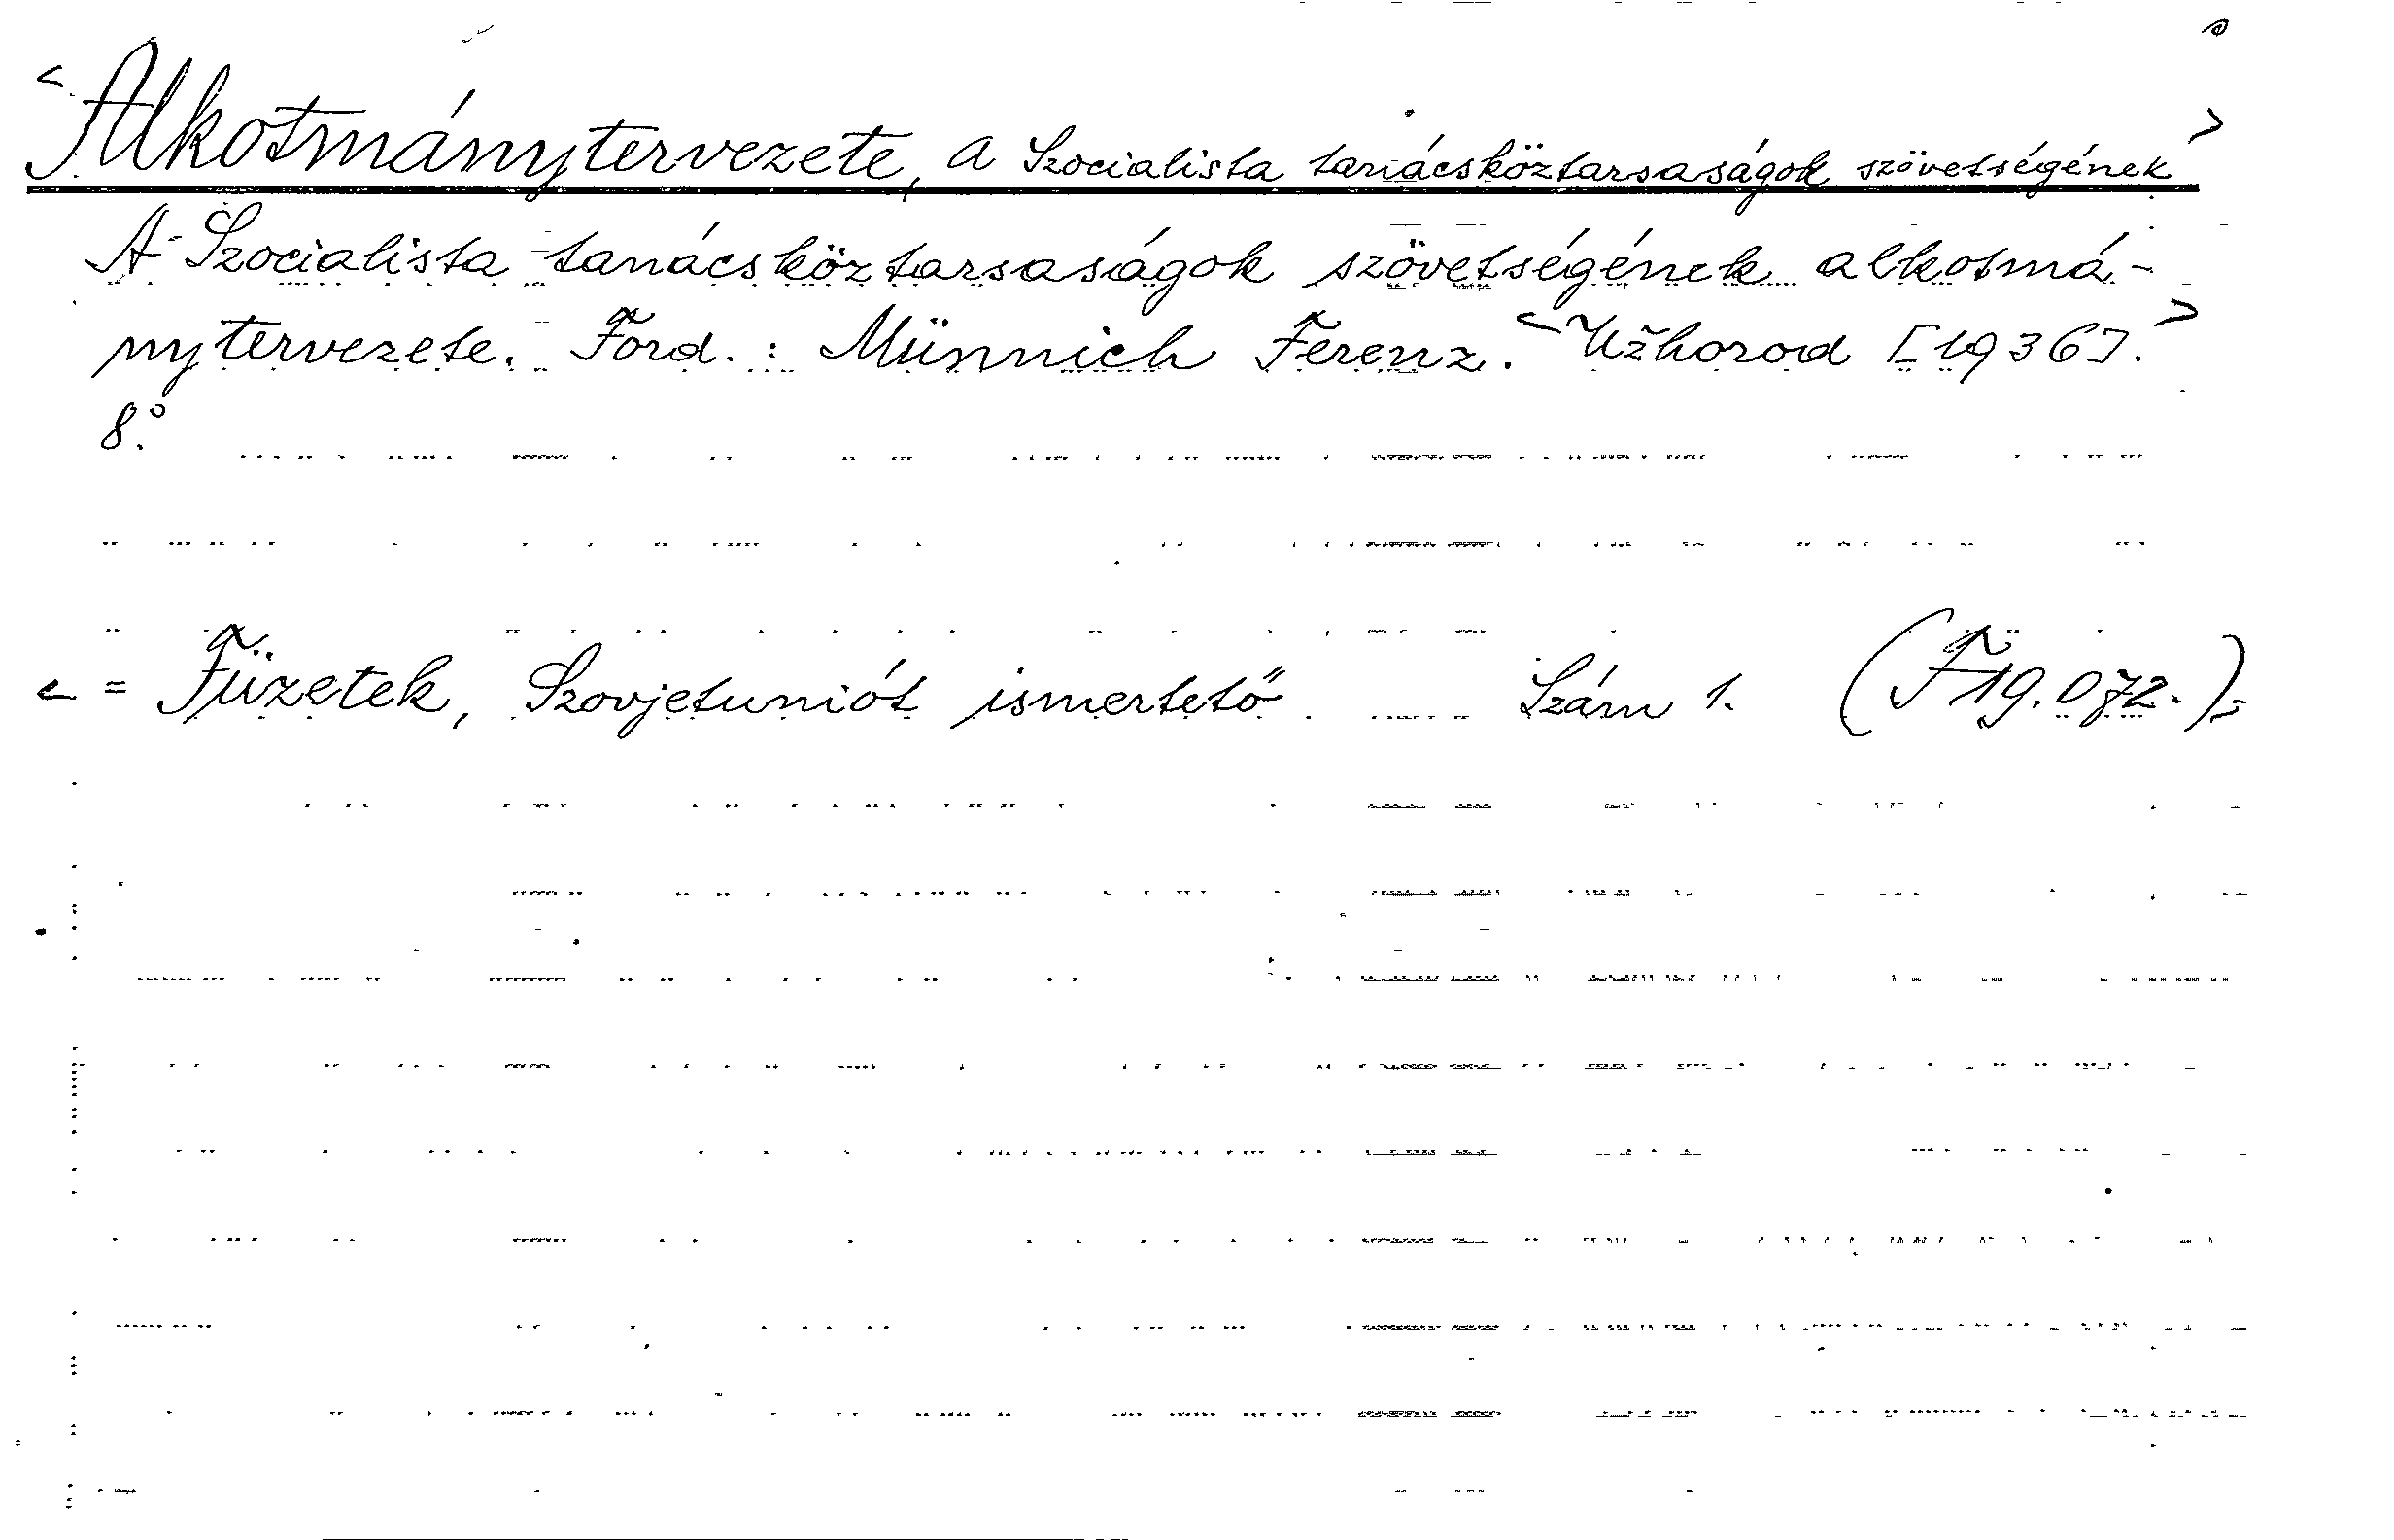 <Alkotmánytervezete, a Szocialista tanácsköztarsaságok szövetségének>
A Szocialista tanácsköztarsaságok szövetségének alkotmá-
nytervezete. Ford.: Münnich Ferenz. <Užhorod [1936].>
8°.
< = Füzetek, Szovjetuniót ismertető Szám 1. (F 19.072.)>